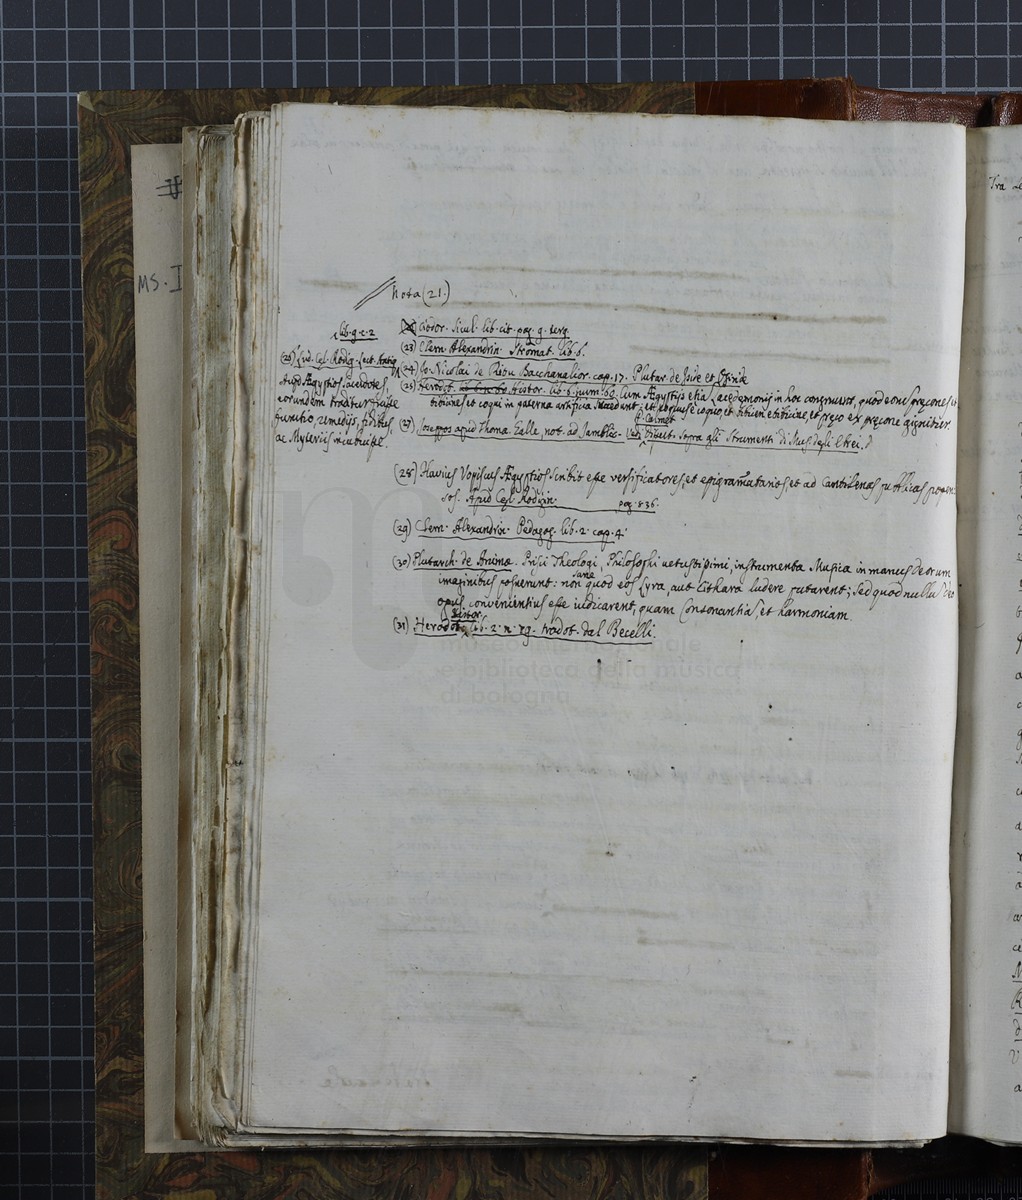 MS. I
Nota (21.)
Diodor. Sicul. lib. cit. pag. 9. terg.
(23) Clem. Alexandrin. Stromat. lib. 6.
(24) Jo: Nicolai de Ritu Bacchanalior. cap. 17. Plutar. de Iside et Osiride
(25) Herodot. Histor. lib. 6. num. 60. Cum Ægyptijs etia Lacedemonij in hoc congruunt, quod eorū precones et
tibicines et coqui in paterna artificia succedant, et coquus e coquo, et tibicen e tibicine, et preco ex precone gignitur.
lib. 9. c. 2
(26) Lud. Cel. Rodig. Lect. Antiq.
Apud Ægyptios sacerdotes,
eorundem traditur fuisse
functio, remedijs, fidibus
ac Mysterijs incubuisse.
P. Calmet
(27) Joseppos apud Thoma Galle, not. ad Jamblic. Vedi Dissert. sopra gli Strumenti di Mus. degli Ebrei.
(28) Flavius Vopiscus Ægyptios scribit esse versificatores, et epigramatarios, et ad Cantilenas publicas propen:
sos. Apud Cęl. Rodigin. pag. 836.
(29) Clem. Alexandrin. Pedagog. lib. 2. cap. 4.
(30) Plutarch. de Anima. Prisci Theologi, Philosophi uetustissimi, instrumenta Musica in manus deorum
imaginibus posuerunt: non sane quod eos Lyra, aut Cithara ludere putarent; sed quod nullu Deo
opus convenientius esse iudicarent, quam Consonantia, et harmoniam.
Histor.
(31) Herodot. lib. 2. n. 79. tradot. dal Becelli.
museo internazionale
e biblioteca della musica
di bologna
Tra